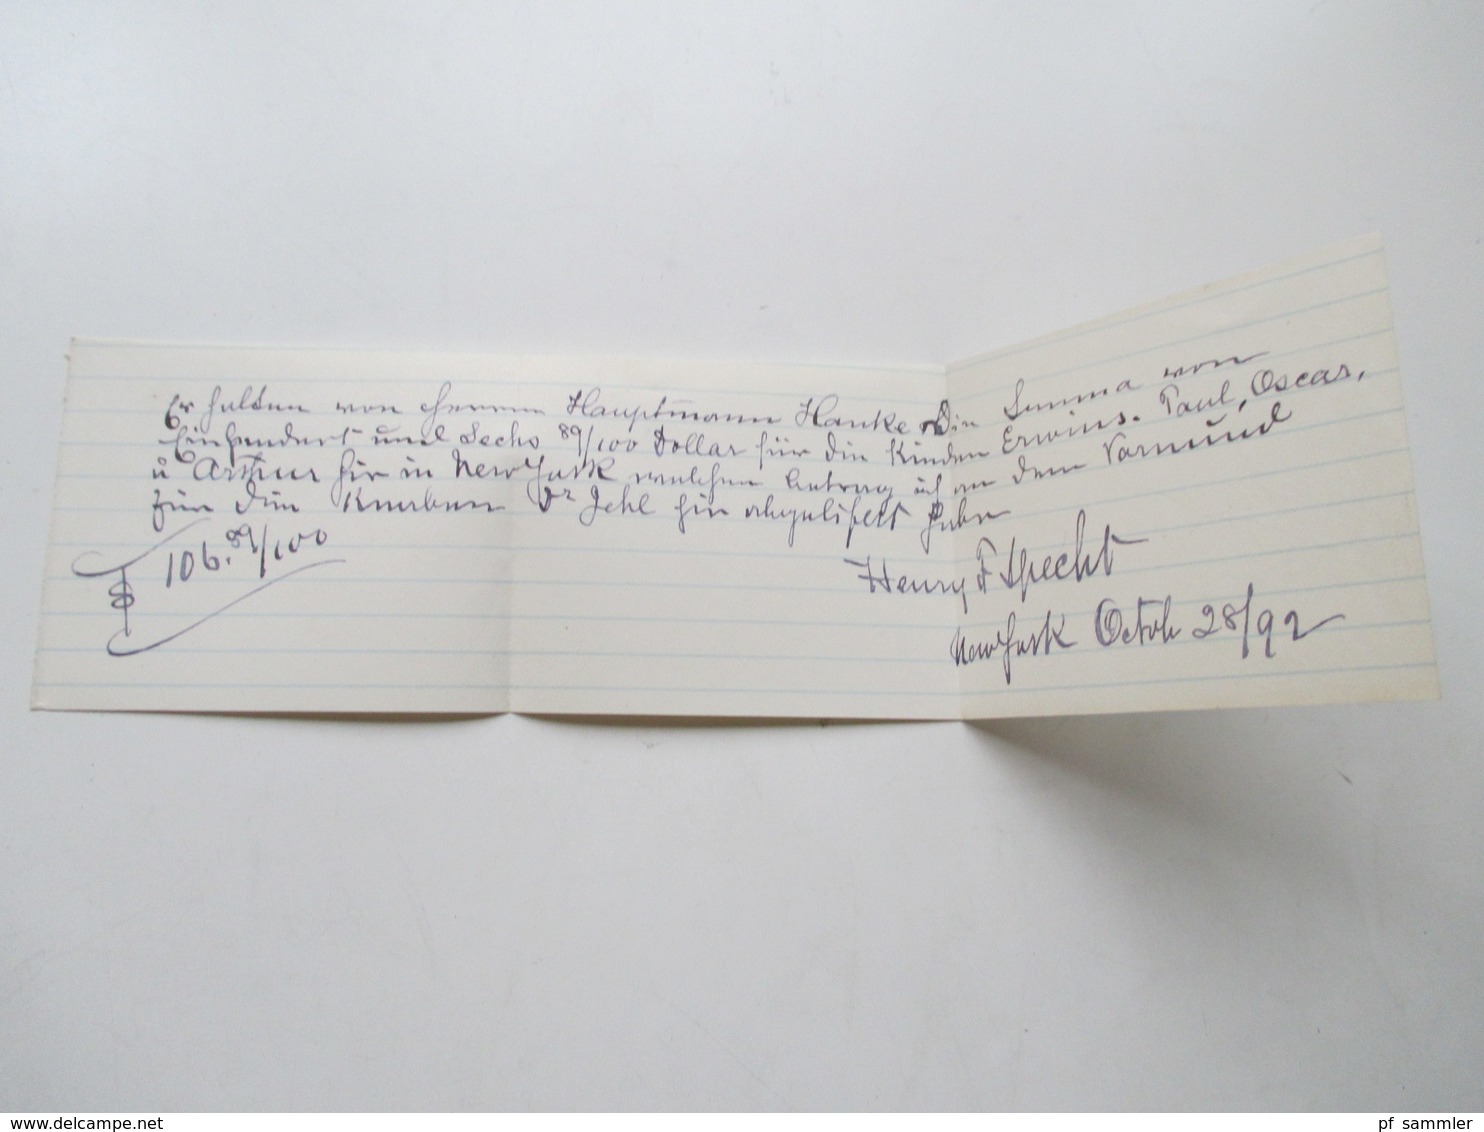 Erhalten von Herrn Hauptmann Hanke die Summa von
Einhundert und Sechs 89/100 Dollar für die Kinder Erwins. Paul, Oscar,
u Arthur hir in New York welchen betrag ich an dem Vormund
für die Knaben Dr Jehl hir abgelifert habe
$ 106.89/100
Henry F Specht
New York Octob 28/92
delcampe.net
pf_sammler